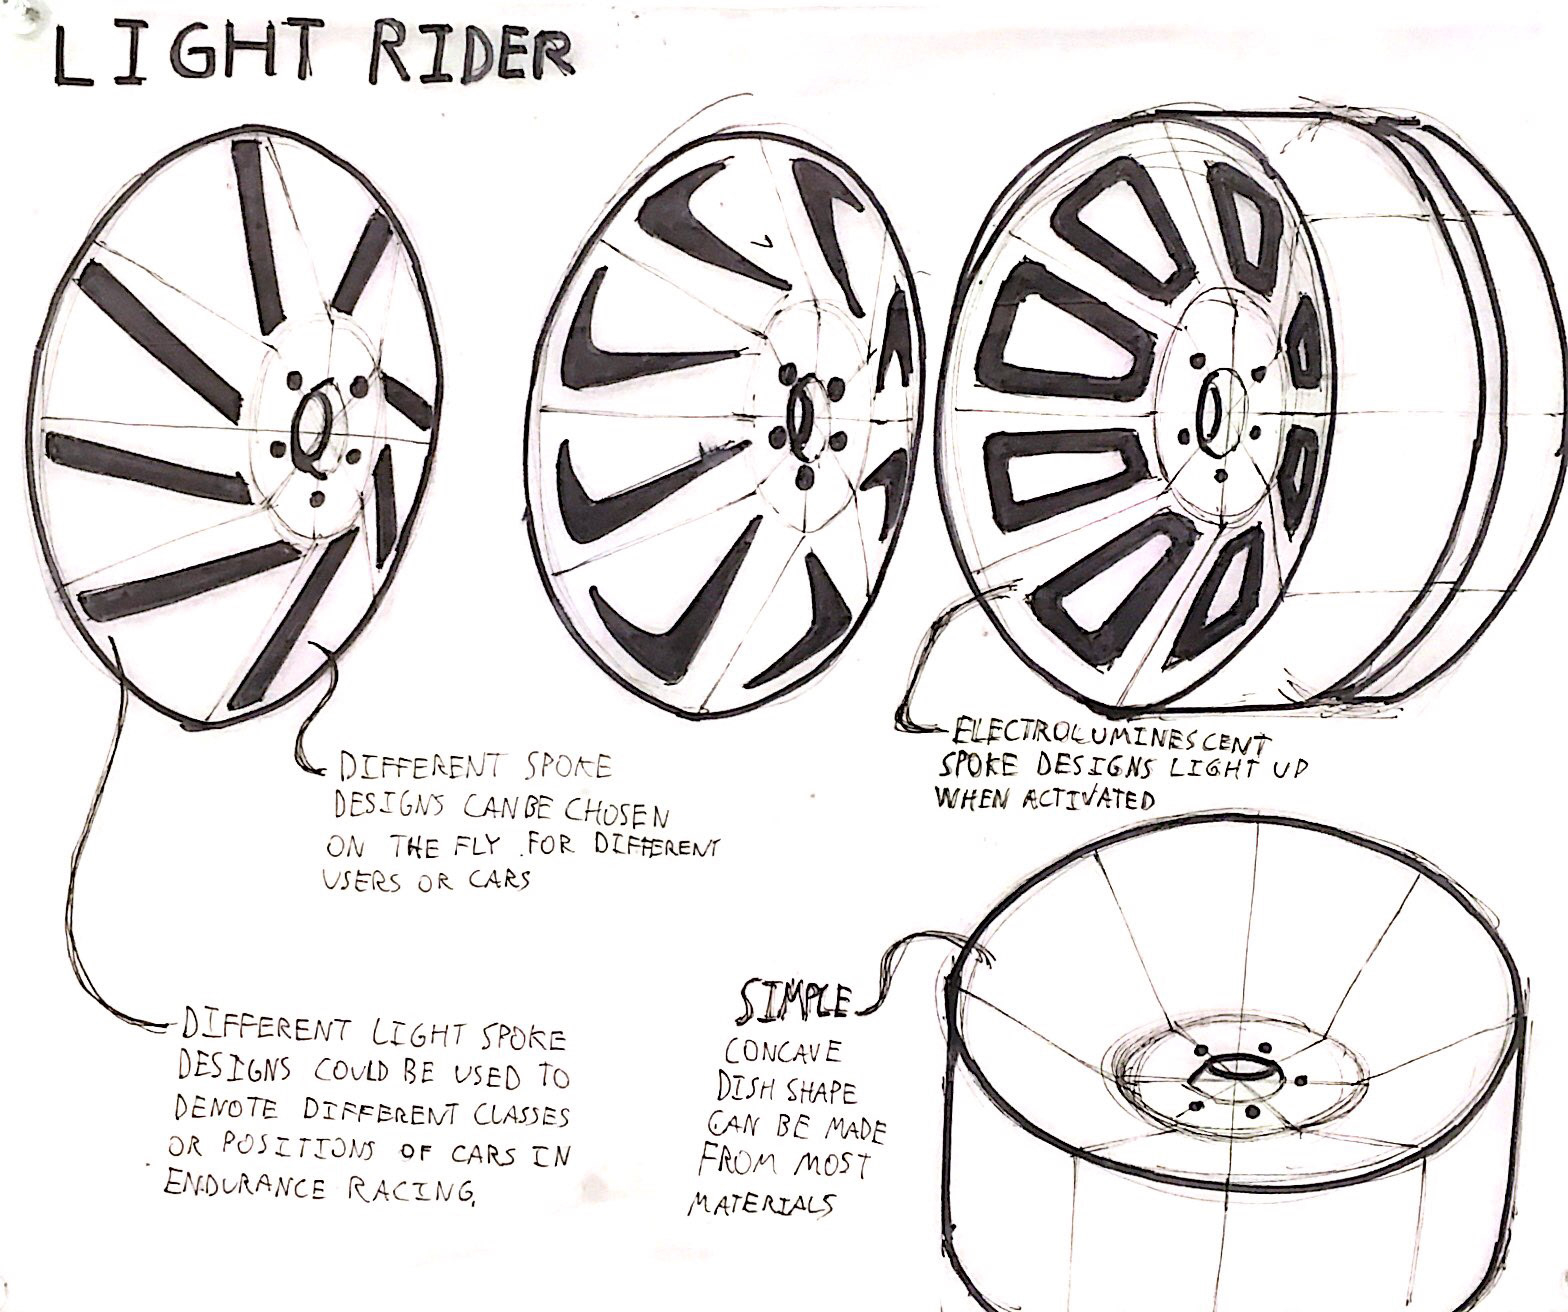 LIGHT RIDER
DIFFERENT SPOKE
DESIGNS CAN BE CHOSEN
ON THE FLY FOR DIFFERENT
USERS OR CARS
ELECTROLUMINESCENT
SPOKE DESIGNS LIGHT UP
WHEN ACTIVATED
DIFFERENT LIGHT SPOKE
DESIGNS COULD BE USED TO
DENOTE DIFFERENT CLASSES
OR POSITIONS OF CARS IN
ENDURANCE RACING.
SIMPLE
CONCAVE
DISH SHAPE
CAN BE MADE
FROM MOST
MATERIALS